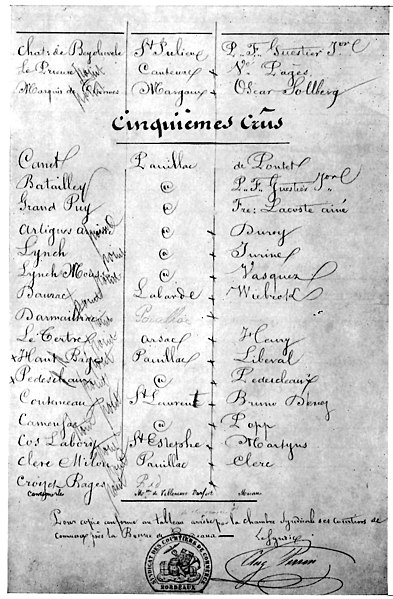 Chat. de Beychevele St Julien P. F. Guestier Jor
Le Prieuré Cantenac Ve Pages
Marquis de Thermes Margaux Oscar Sollberg
Cinquièmes Crûs
Canet Pauillac de Pontet
Batailley @ P. F. Guestier Jor
Grand Puy @ Fre: Lacoste ainé
Artigues Arnaud @ Duroy
Lynch @ Jurine
Lynch Mous @ Vasquez
Dauzac Labarde Wiebrok
Darmailhac Pauillac
Le Tertre Arsac Henry
x Haut Bages Pauillac Liberal
x Pedesclaux @ Pedesclaux
Coutenceau St Laurent Bruno Devez
Camensac @ Popp
Cos Labory St Estephe Martyns
Clerc Milon Pauillac Clerc
Croizet Bages
Cantemerle Mme de Villeneuve Durfort Macau
Pour copie conforme au tableau arrêté par la Chambre Syndicale des Courtiers de
Commerce près la Bourse de Bordeaux
Le Syndic
SYNDICAT DES COURTIERS DE COMMERCE
BORDEAUX